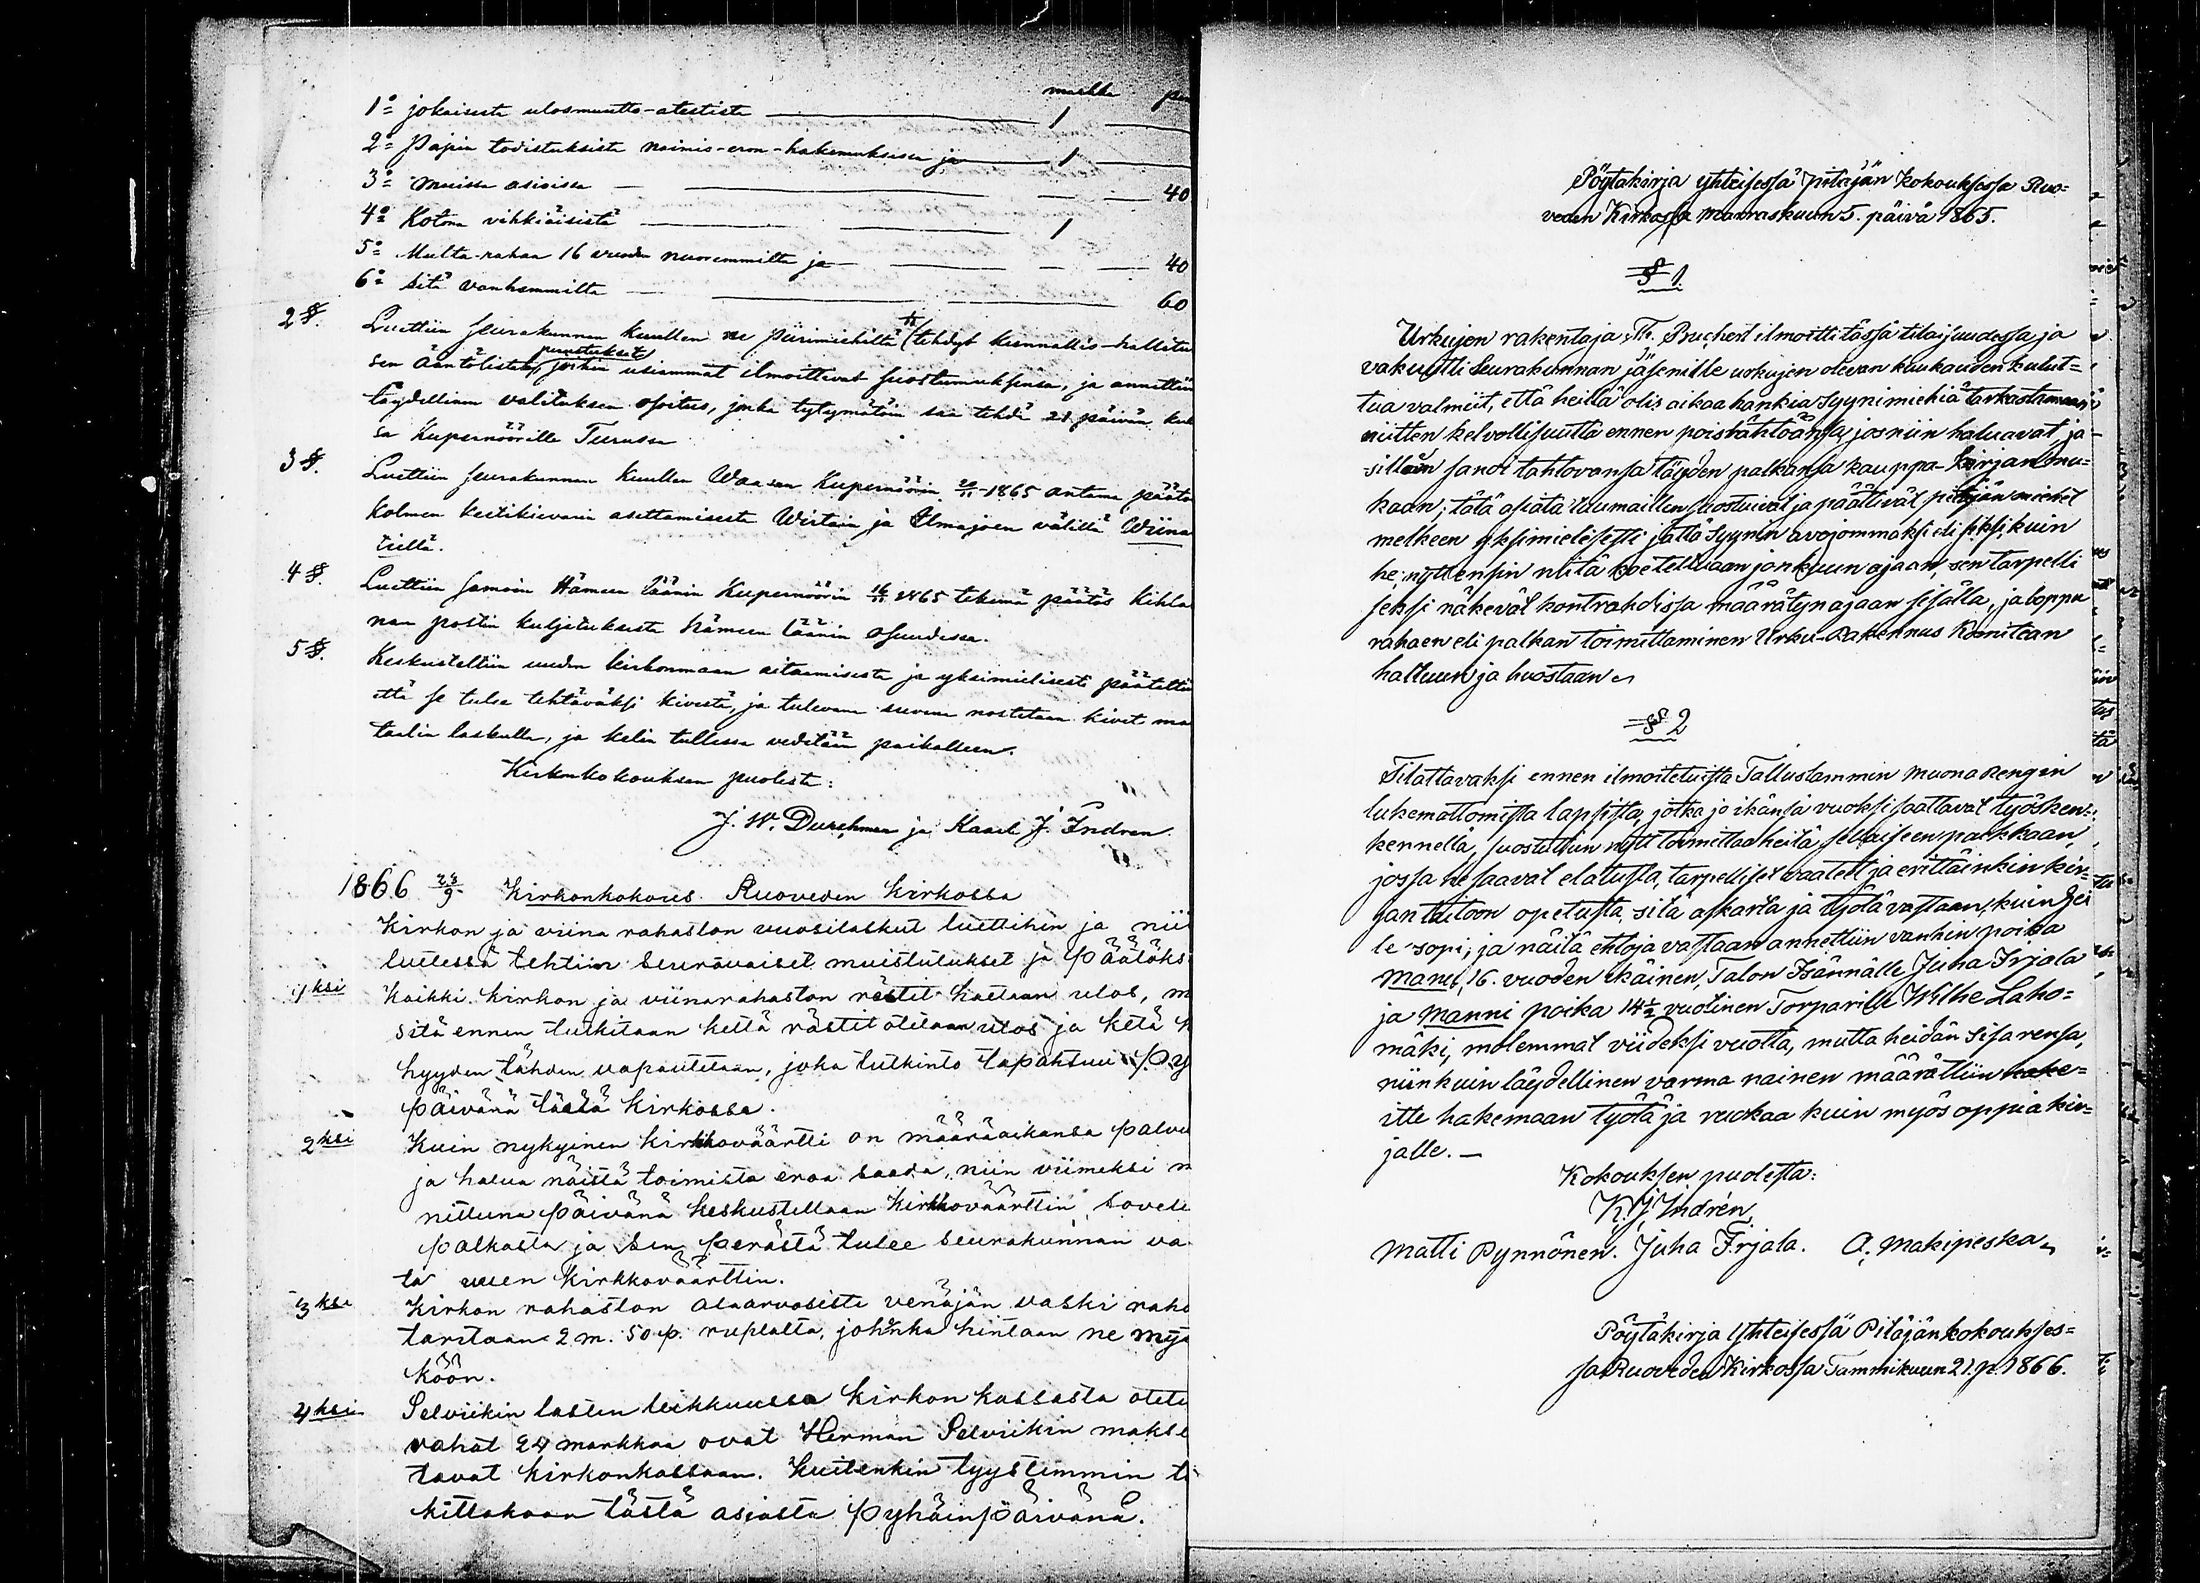 markka pen
1:o jokaisesta ulosmuutto-atestista — 1 —
2:o Papin todistuksista naimis-eron-hakemuksissa ja — 1 —
3:o muissa asioissa — — 40
4:o Kotona vihkiäisistä — 1
5:o Multa-rahaa 16 vuoden nuoremmilta ja — — 40
6:o sitä vanhemmilta — 60
2 §. Luettiin seurakunnan kuullen ne piirimiehiltä tehdyt kunnallis-hallitu
sen ääntölistat, muistutukset joihin usiammat ilmoittivat suostumuksensa, ja annettiin
täydellinen valituksen osoitus, jonka tytymätöin saa tehdä 21 päivän
sa Kupernöörille Turussa
3 §. Luettiin seurakunnan kuullen Waasan Kupernöörin 20/11 1865 antama päätö
kolmen kestikievarin asettamisesta Wirtain ja Ilmajoen välillä Wiina
tiellä.
4 §. Luettiin samoin Hämeen läänin Kupernöörin 16/11 1865 tekemä päätös kihla
nan postin kuljetuksesta Hämeen läänin osuudessa.
5 §. Keskusteltiin uuden kirkonmaan aitaamisesta ja yksimielisesti päätettiin
että se tulee tehtäväksi kivestä, ja tulevana suvena nostetaan kivet ma
taalin laskulla, ja kelin tullessa vedetään paikalleen.
Kirkonkokouksen puolesta:
J. W. Durchman ja Kaarl J. Indren
1866 23/9 Kirkonkokous Ruoveden Kirkossa
Kirkon ja viina rahaston vuosilaskut luettihin ja nii
luetessa tehtiin seuraavaiset muistutukset ja Päätöks
1ksi Kaikki kirkon ja viinarahaston rästit haetaan ulos, m
sitä ennen tutkitaan keltä rästit otetaan ulos ja ketä k
hyyden tähden vapautetaan, joka tutkinto tapahtuu Py
päivänä tässä kirkossa.
2ksi Kuin nykyinen kirkkoväärtti on määräaikansa palvel
ja halua näistä toimista eroa saada, niin viimeksi m
nittuna päivänä keskustellaan kirkkoväärttin sovel
palkasta ja sen perästä tulee seurakunnan va
ta uuen kirkkoväärttin.
3ksi Kirkon rahaston alaarvoisesti venäjän vaski raha
taritaan 2 m. 50 p. ruplalta, johonka hintaan ne myy
köön.
4ksi Selviikin lasten leikkuussa kirkon kassasta otetu
rahat 24 markkaa ovat Herman Selviikin makse
tavat kirkonkassaan. Kuitenkin tyystimmin t
kittakoon tästä asiasta Pyhäinpäivänä.
Pöytäkirja yhteisessä Pitäjän Kokouksessa Ruo=
veden Kirkossa Marraskuun 5. päivä 1865.
§ 1.
Urkujen rakentaja, Th. Bruchert ilmoitti tässä tilaisuudessa ja
vakuutti Seurakunnan jäsenille urkujen olevan kuukauden kulut=
tua valmiit, että heillä olis aikaa hankia Syynimiehiä tarkastamaan
niitten kelvollisuutta ennen poislähtöänsä, jos niin haluavat, ja
silloin sanoi tahtovansa täyden palkansa kauppa-Kirjan mu=
kaan; tätä asiata tuumaillen suostuivat ja päättivät pitäjän miehet
melkeen yksimielisesti jättä Syynin avojommaksi eli siksi, kuin
he, nyt ensin niitä koetelluaan jonkuun ajaan, sen tarpelli
seksi näkevät kontrahdissa määrätyn ajaan sisällä, ja loppu
rahaen eli palkan toimittaminen Urku-Rakennus Komitean
haltuun ja huostaan.
§ 2
Tilattavaksi ennen ilmoitetuista Talluslammin muona Rengin
lukemattomista lapsista, jotka jo ikänsä vuoksi saattavat työsken=
kennellä, suostuttiin nytt toimittaa heitä sellaiseen paikkaan,
jossa he saavat elatusta, tarpelliset vaatett ja erittäinkin kir=
jan taitoon opetusta, sitä askarta ja työtä vastaan, kuin hei
le sopi; ja näitä ehtoja vastaan annettiin vanhin poika
Manu, 16. vuoden ikäinen, Talon Isännälle Juha Irjala
ja Manni poika 14½ vuotinen Torparille Wilhe Laho=
mäki, molemmat viideksi vuotta, mutta heidän sisarensa,
niinkuin täydellinen varma nainen määrättiin hake=
itte hakemaan työtä ja ruokaa kuin myös oppia kir=
jalle. —
Kokouksen puolesta:
K. J. Indrén.
Matti Pynnönen. Juha Irjala. A. Makipeska
Pöytäkirja Yhteisessä Pitäjänkokoukses=
sa Ruoveden Kirkossa Tammikuun 21. p. 1866.